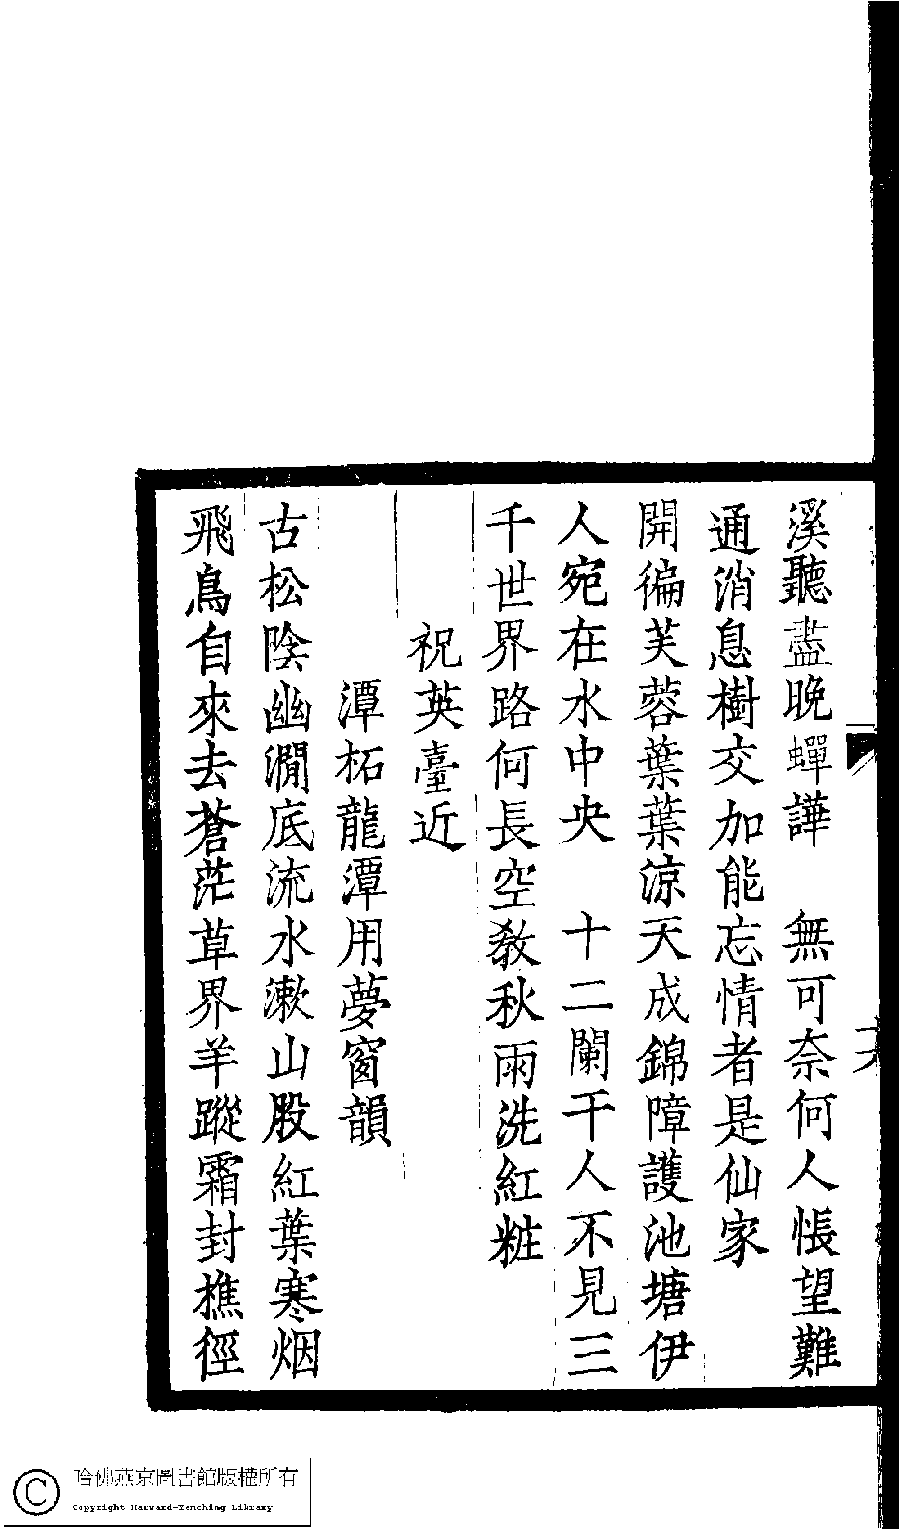 溪聽盡晚蟬譁　無可奈何人悵望難
通消息樹交加能忘情者是仙家
開徧芙蓉葉葉涼天成錦障護池塘伊
人宛在水中央　十二闌干人不見三
千世界路何長空敎秋雨洗紅粧
祝英臺近
潭柘龍潭用夢窗韻
古松陰幽澗底流水漱山股紅葉寒烟
飛鳥自來去蒼茫草界羊蹤霜封樵徑
哈佛燕京圖書館版權所有
Copyright Harvard-Yenching Library